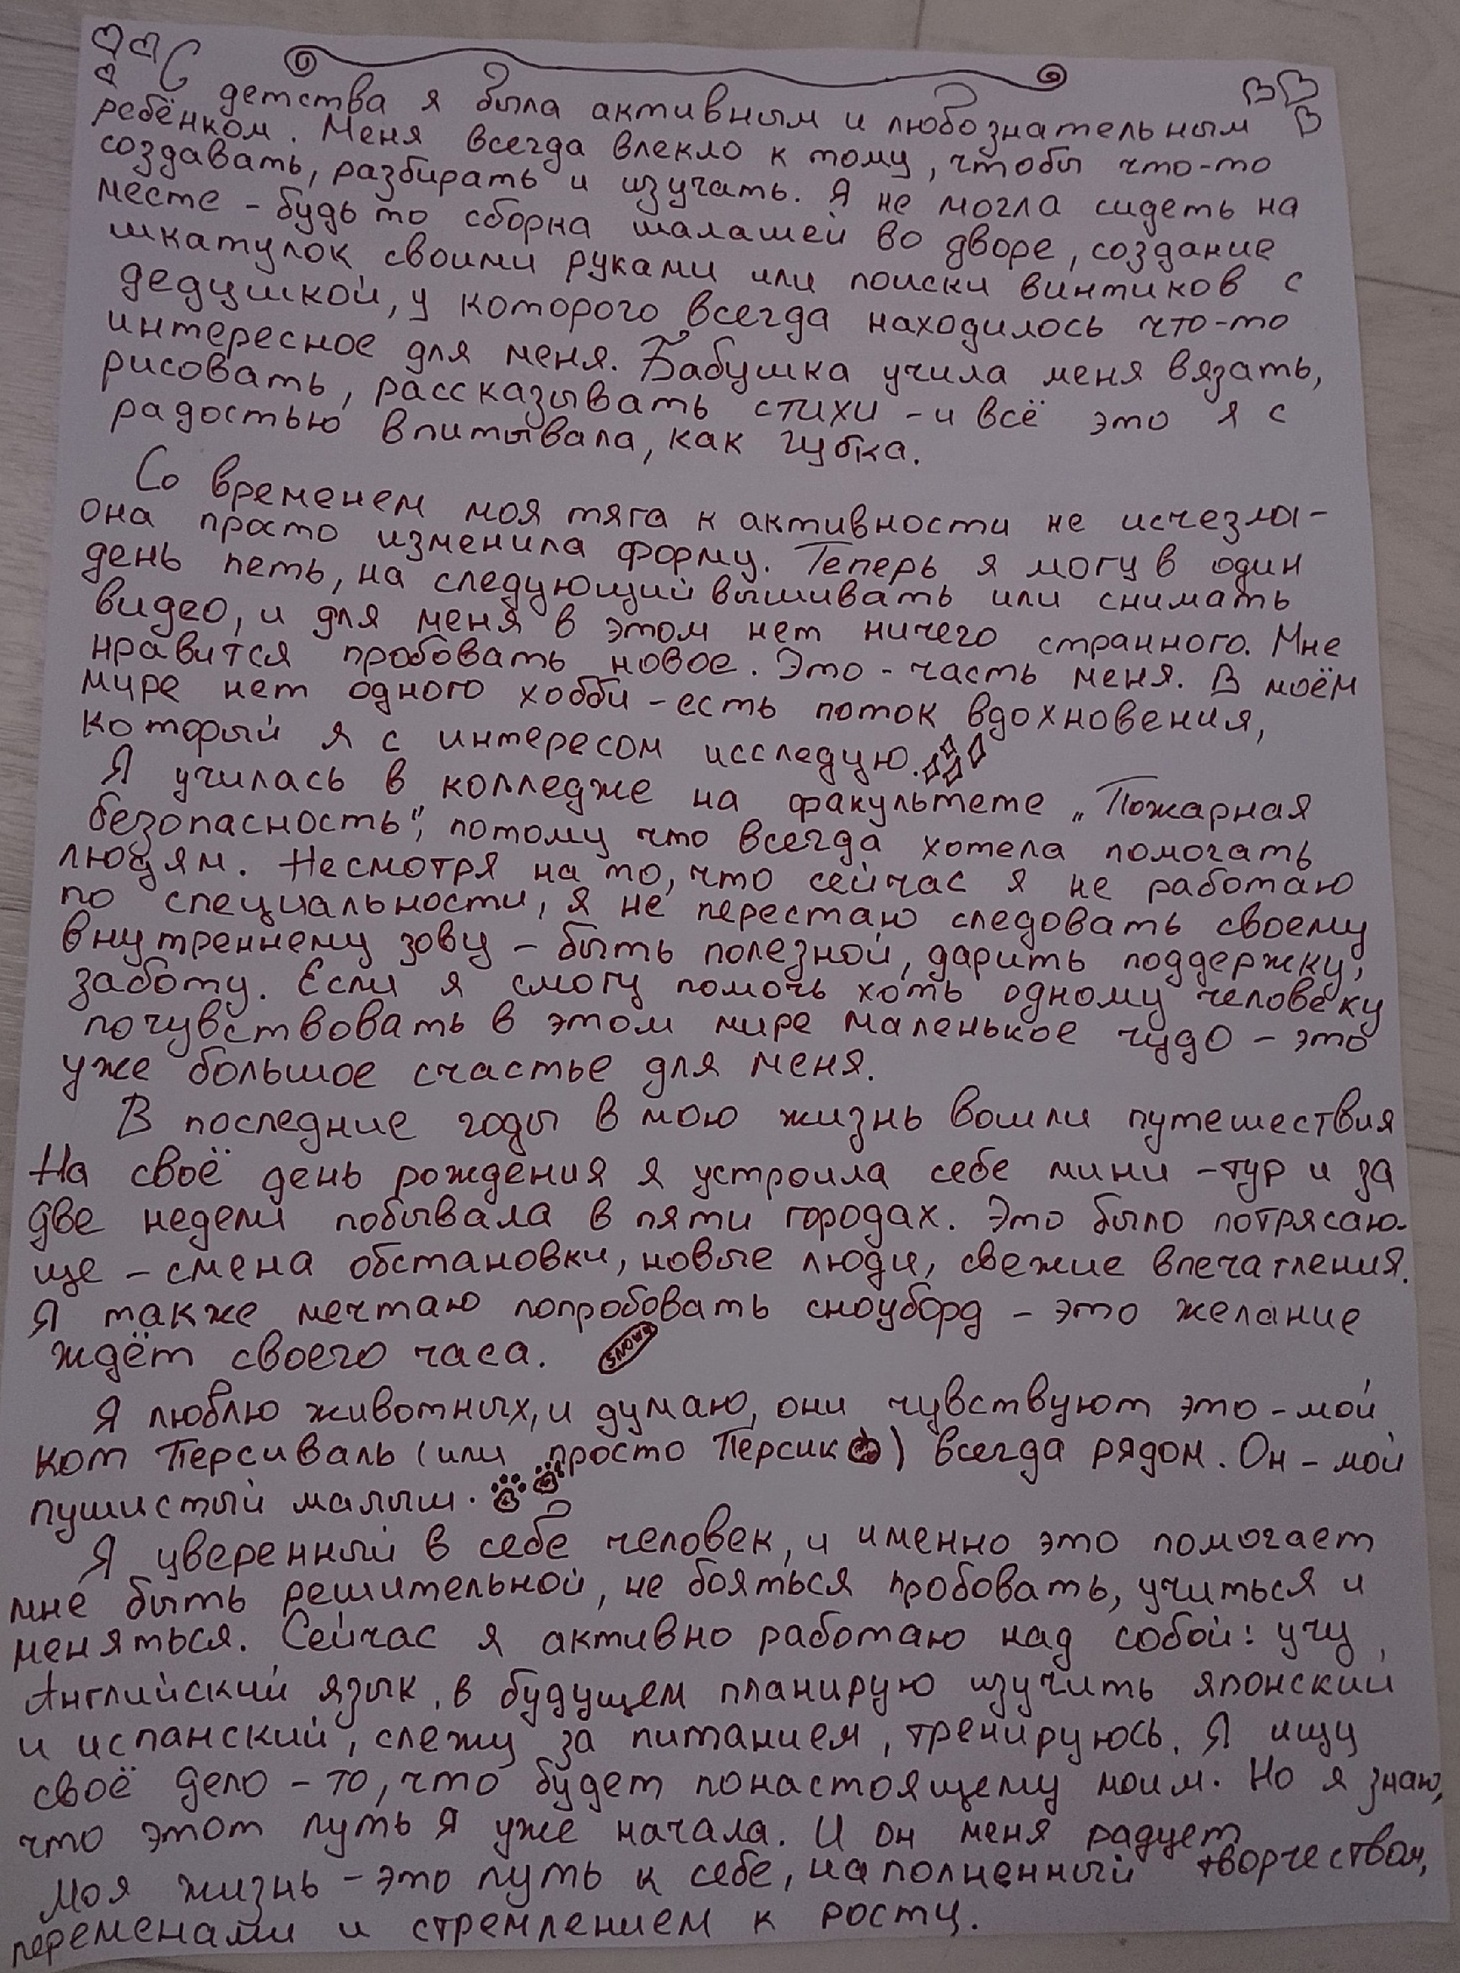 С детства я была активным и любознательным
ребёнком. Меня всегда влекло к тому, чтобы что-то
создавать, разбирать и изучать. Я не могла сидеть на
месте - будь то сборка шалашей во дворе, создание
шкатулок своими руками или поиски винтиков с
дедушкой, у которого всегда находилось что-то
интересное для меня. Бабушка учила меня вязать,
рисовать, рассказывать стихи - и всё это я с
радостью впитывала, как губка.
Со временем моя тяга к активности не исчезлы -
она просто изменила форму. Теперь я могу в один
день петь, на следующий вышивать или снимать
видео, и для меня в этом нет ничего странного. Мне
нравится пробовать новое. Это - часть меня. В моём
мире нет одного хобби - есть поток вдохновения,
который я с интересом исследую.
Я училась в колледже на факультете „Пожарная
безопасность", потому что всегда хотела помогать
людям. Несмотря на то, что сейчас я не работаю
по специальности, я не перестаю следовать своему
внутреннему зову - быть полезной, дарить поддержку,
заботу. Если я смогу помочь хоть одному человеку
почувствовать в этом мире маленькое чудо - это
уже большое счастье для меня.
В последние годы в мою жизнь вошли путешествия
На своё день рождения я устроила себе мини - тур и за
две недели побывала в пяти городах. Это было потрясаю-
ще - смена обстановки, новые люди, свежие впечатления.
Я также мечтаю попробовать сноуборд - это желание
ждёт своего часа. SNOW
Я люблю животных, и думаю, они чувствуют это - мой
кот Персиваль (или просто Персик) всегда рядом. Он - мой
пушистый малыш.
Я уверенный в себе человек, и именно это помогает
мне быть решительной, не бояться пробовать, учиться и
меняться. Сейчас я активно работаю над собой: учу
Английский язык, в будущем планирую изучить японский
и испанский, слежу за питанием, тренируюсь. Я ищу
своё дело - то, что будет понастоящему моим. Но я знаю,
что этот путь я уже начала. И он меня радует
Моя жизнь - это путь к себе, наполненный творчеством,
переменами и стремлением к росту.